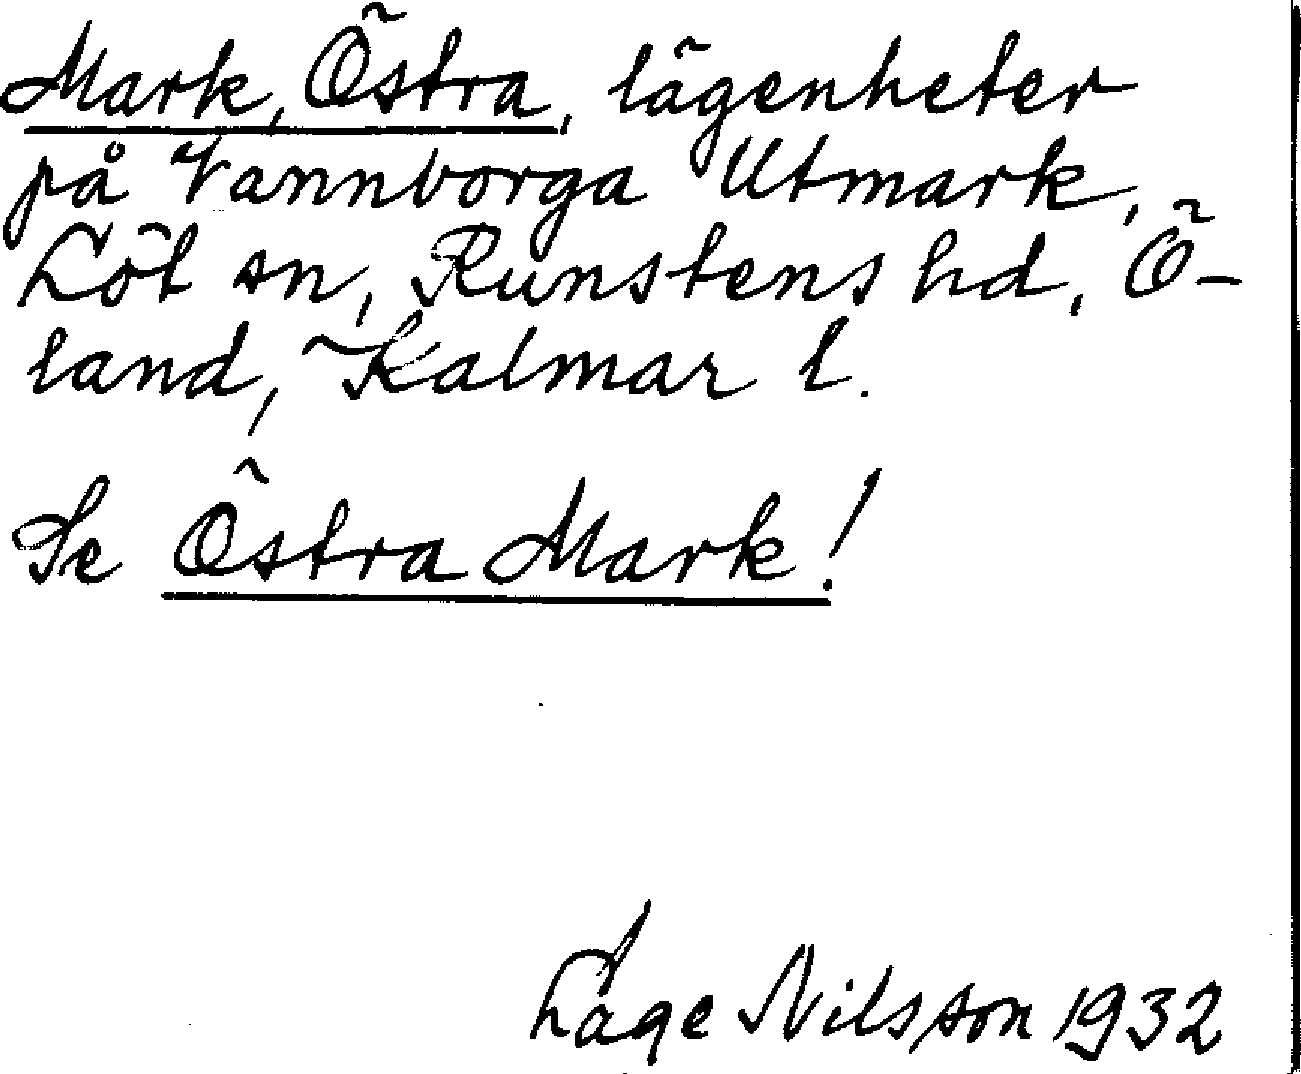 Mark, Östra, lägenheter
på Vannborga Utmark,
Löt sn, Runstens hd, Ö-
land, Kalmar l.
Se Östra Mark!
Låge Nilsson 1932